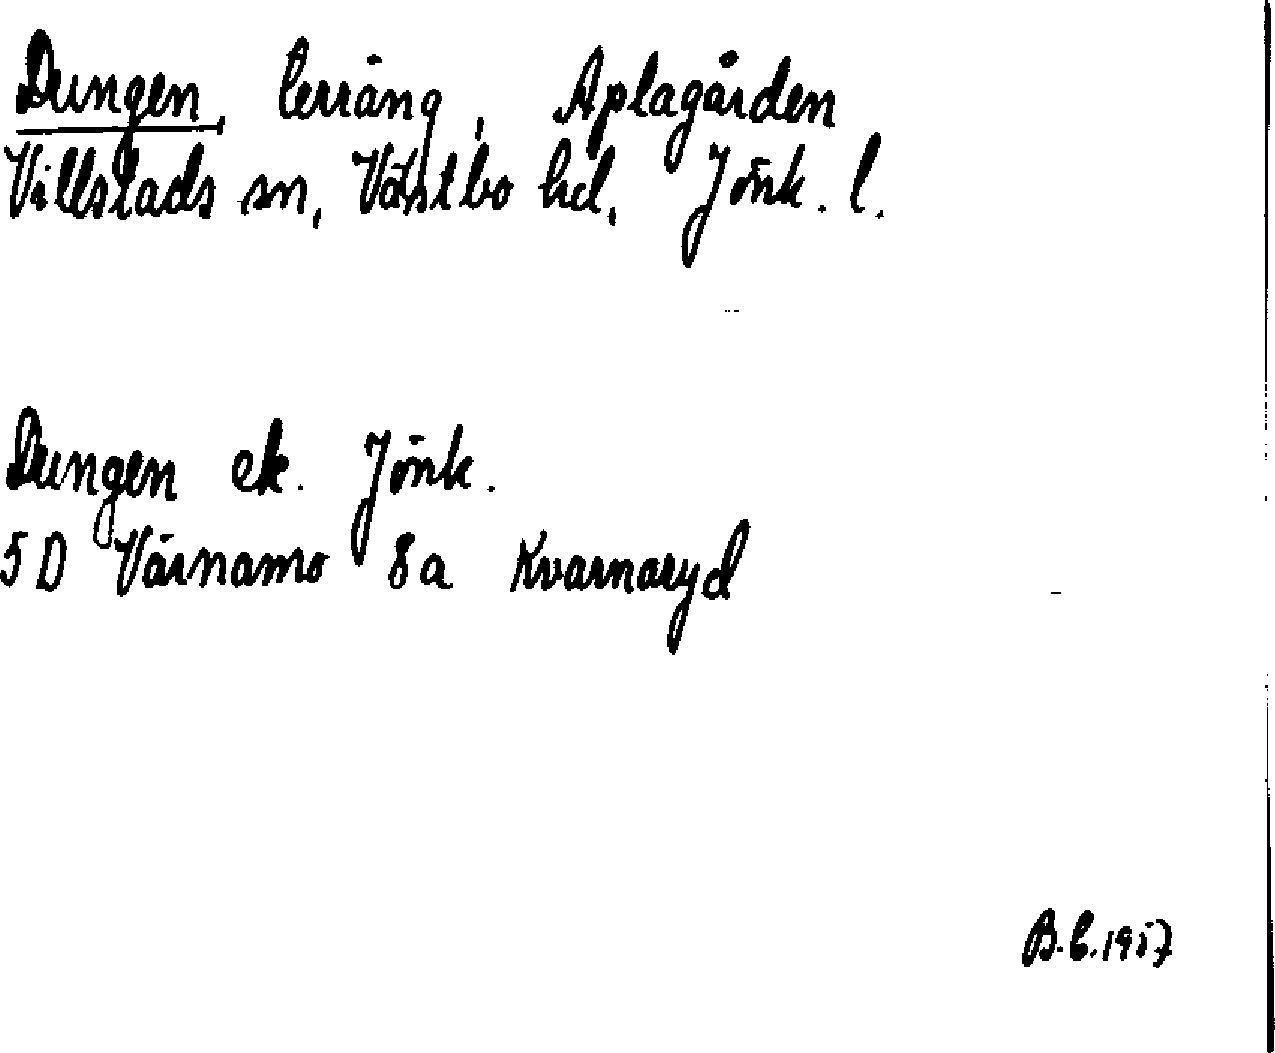 Dungen, terräng, Aplagården
Villstads sn, Västbo hd, Jönk. l.
Dungen ek. Jönk.
5 D Värnamo 8a Kvarnaryd
B.C. 1957